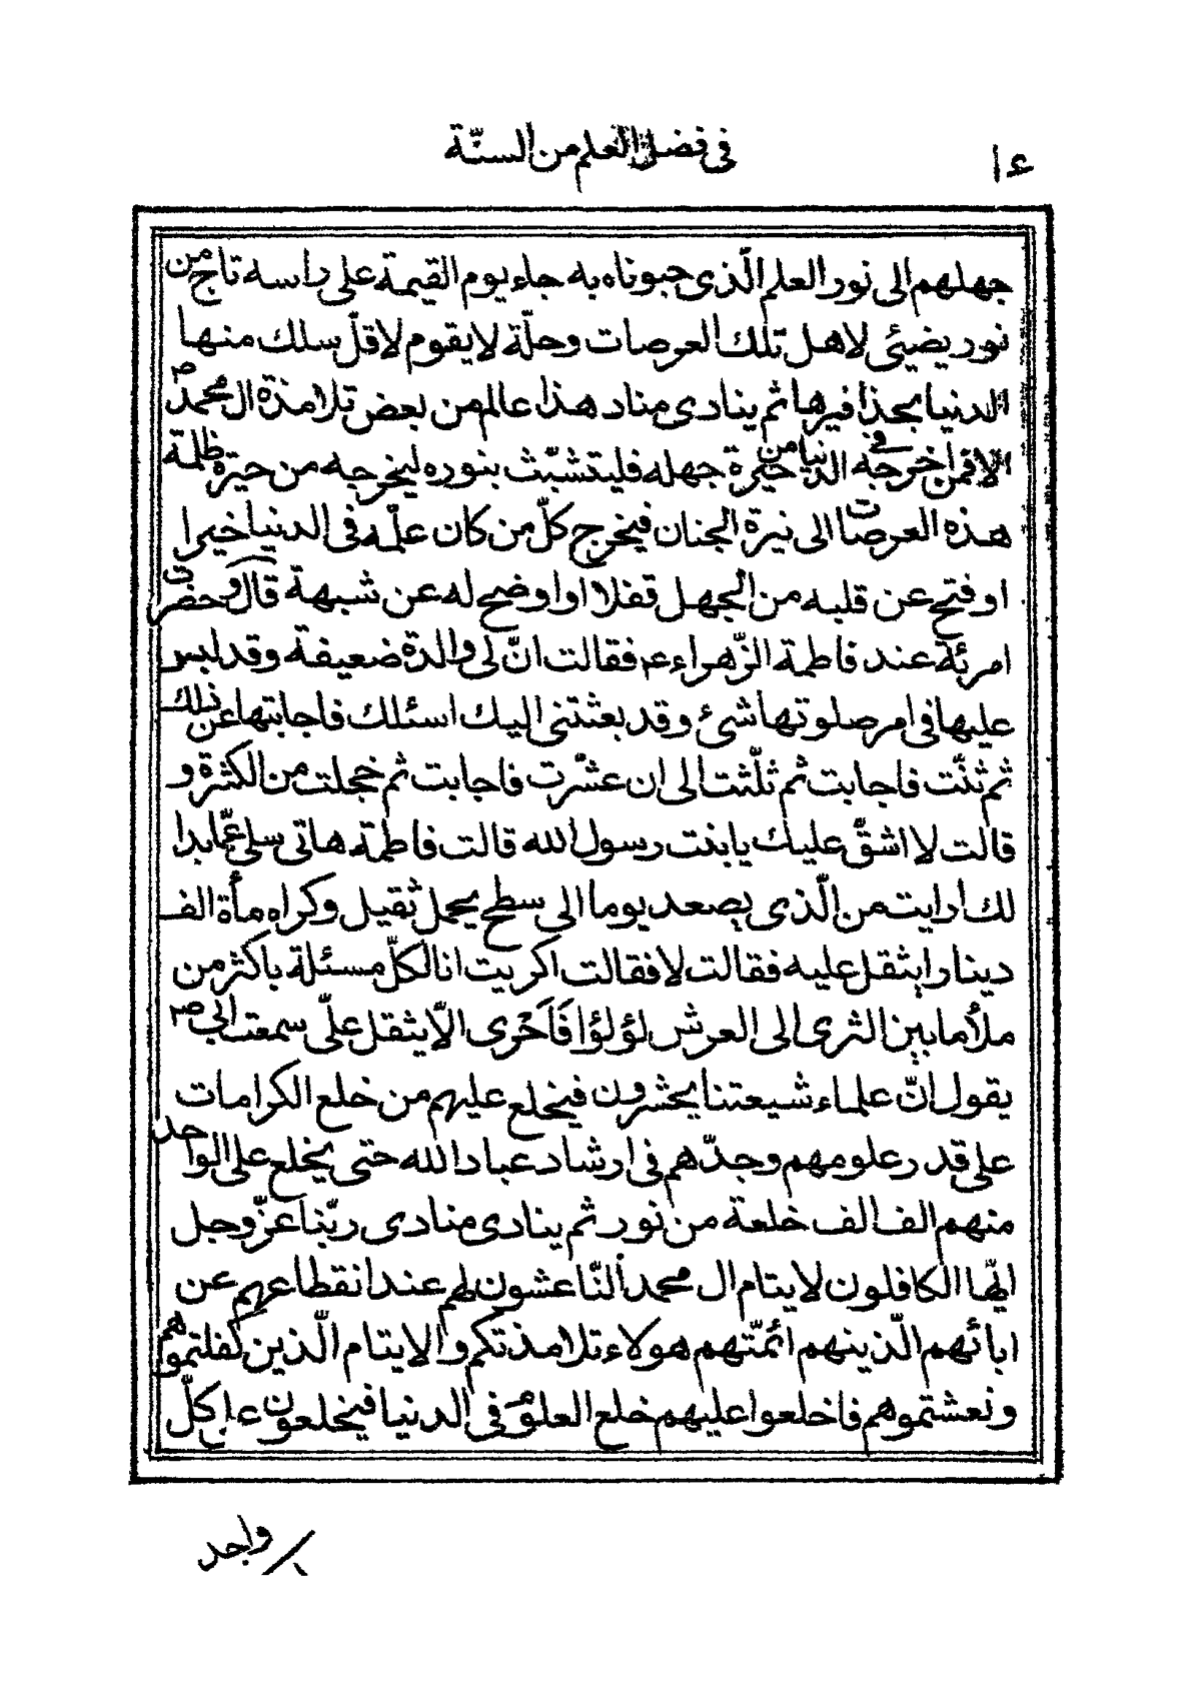 ١٤
في فضل العلم من السنّة
جهلهم الى نور العلم الّذى حبوناه به جاء يوم القيمة على راسه تاج من
نور يضيئ لاهل تلك العرصات وحلّة لا يقوم لاقلّ سلك منها
الدنيا بحذافيرها ثم ينادى مناد هذا عالم من بعض تلامذة ال محمد ص
الا فمن اخرجه في الدنيا من حيرة جهله فليتشبّث بنوره ليخرجه من حيرة ظلمة
هذه العرصات الى نيرة الجنان فيخرج كلّ من كان علّمه فى الدنيا خيرا
او فتح عن قلبه من الجهل قفلا او اوضح له عن شبهة قال وحضرت
امرئة عند فاطمة الزّهراء ع فقالت انّ لى والدة ضعيفة وقد لبس
عليها فى امر صلوتها شئ وقد بعثتنى اليك اسئلك فاجابتها عن ذلك
ثم ثنّت فاجابت ثم ثلّثت الى ان عشّرت فاجابت ثم خجلت من الكثرة و
قالت لا اشقّ عليك يا بنت رسول الله قالت فاطمة هاتى سلى عمّا بدا
لك ارايت من الّذى يصعد يوما الى سطح بحمل ثقيل وكراه مأة الف
دينار ايثقل عليه فقالت لا فقالت اكريت انا لكلّ مسئلة باكثر من
ملأ ما بين الثرى الى العرش لؤلؤا فَاَحْرى الّا يثقل علىّ سمعت ابى ص
يقول انّ علماء شيعتنا يحشرون فيخلع عليهم من خلع الكرامات
على قدر علومهم وجدّهم فى ارشاد عباد الله حتى يخلع على الواحد
منهم الف الف خلعة من نور ثم ينادى منادى ربّنا عزّ وجل
ايّها الكافلون لايتام ال محمد النّاعشون لهم عند انقطاعهم عن
ابائهم الّذينهم ائمّتهم هولاء تلامذتكم والايتام الّذين كفلتموهم
ونعشتموهم فاخلعوا عليهم خلع العلوم فى الدنيا فيخلعون على كلّ
واحد